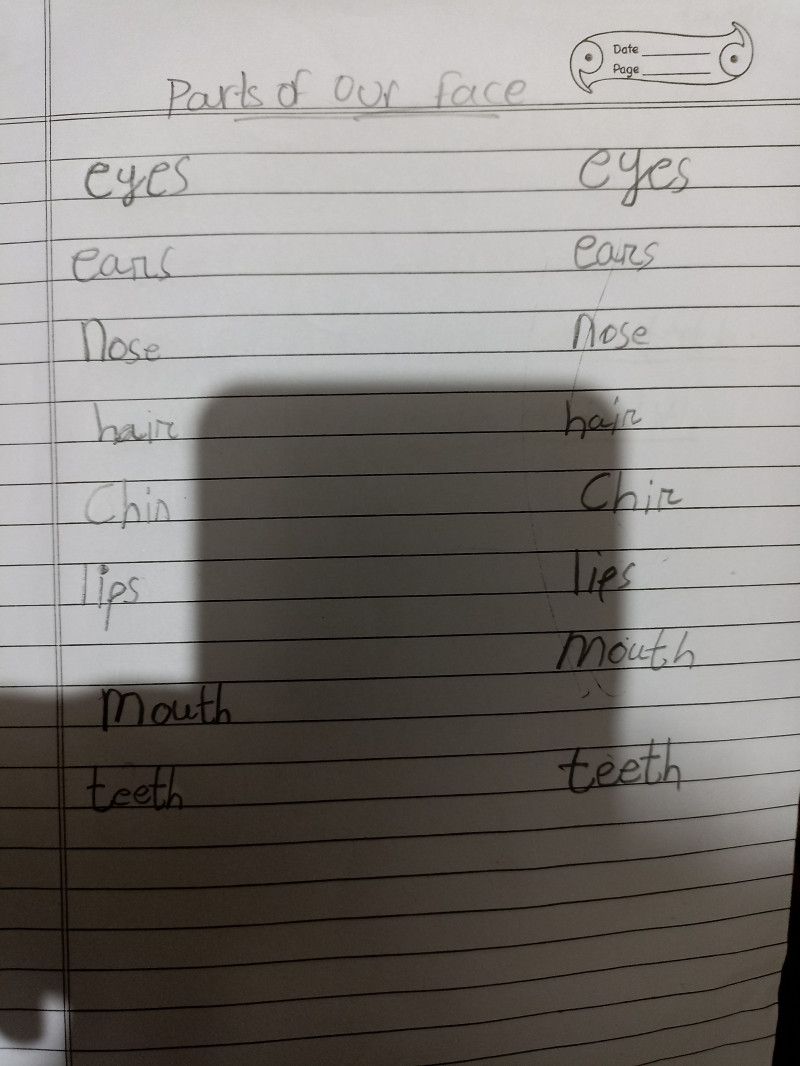 Date
Page
Parts of Our face
eyes eyes
ears ears
Nose Nose
hair hair
Chin Chir
lips lips
Mouth Mouth
teeth teeth